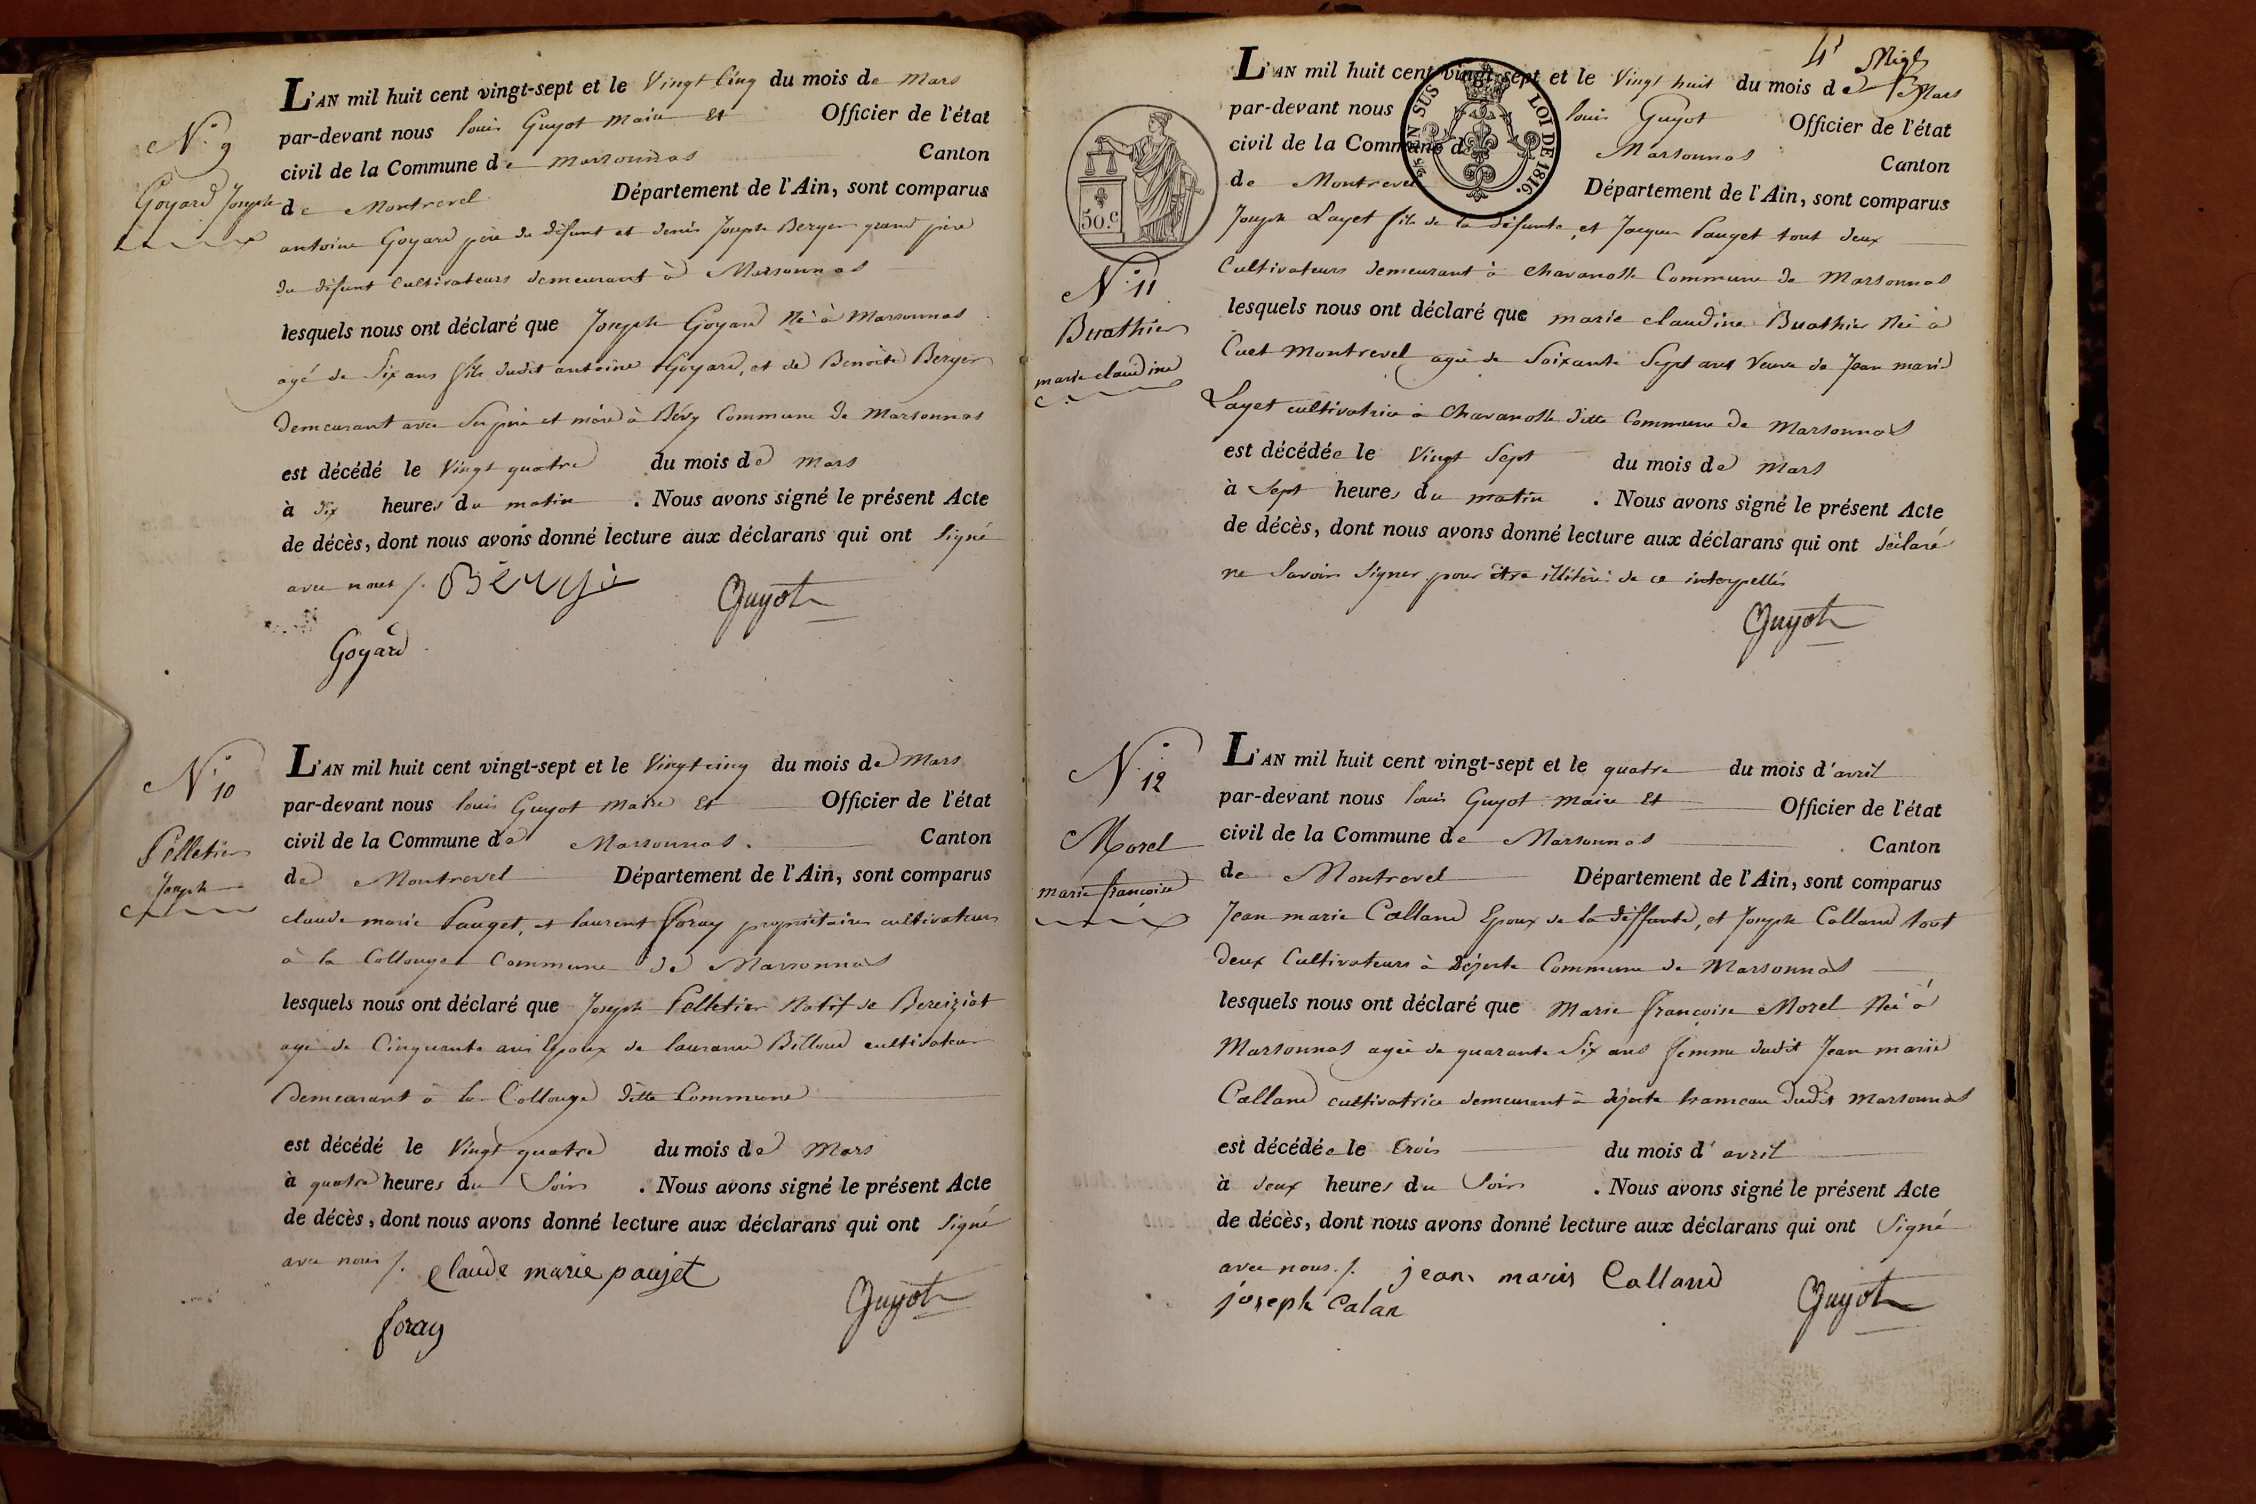 N.° 9
Goyard Joseph
L'AN mil huit cent vingt-sept et le Vingt Cinq du mois de Mars
par-devant nous louis Guyot Maire Et Officier de l'état
civil de la Commune de Marsonnas Canton
de Montrevel Département de l'Ain, sont comparus
antoine Goyard père du défunt et denis Joseph Berger grand père
du défunt Cultivateurs demeurant à Marsonnas
lesquels nous ont déclaré que Joseph Goyard Né à Marsonnas
agé de Six ans fils dudit antoine Goyard, et de Benoite Berger
demeurant avec Ses père et mère à Bévy Commune de Marsonnas
est décédé le Vingt quatre du mois de Mars
à dix heures du matin . Nous avons signé le présent Acte
de décès, dont nous avons donné lecture aux déclarans qui ont Signé
avec nous /.
Guyot
Goyard
N.° 10
Pelletier
Joseph
L'AN mil huit cent vingt-sept et le Vingt cinq du mois de Mars
par-devant nous louis Guyot Maire Et Officier de l'état
civil de la Commune de Marsonnas. Canton
de Montrevel Département de l'Ain, sont comparus
claude marie Pauget, et laurent foray propriétaires cultivateurs
à la Collouge Commune de Marsonnas
lesquels nous ont déclaré que Joseph Pelletier Natif de Bereiziat
agé de Cinquante ans Epoux de laurance Billoud cultivateur
Demeurant à la Collouge ditte Commune
est décédé le Vingt quatre du mois de Mars
à quatre heures du Soir . Nous avons signé le présent Acte
de décès, dont nous avons donné lecture aux déclarans qui ont Signé
avec nous /. claude marie paujet
Guyot
foray
4
L'AN mil huit cent vingt-sept et le Vingt huit du mois de Mars
par-devant nous louis Guyot Officier de l'état
civil de la Commune de Marsonnas Canton
de Montrevel Département de l'Ain, sont comparus
EN SUS
LOI DE 1816.
50.c
N.° 11
Buathier
marie claudine
Joseph Layet fils de la défunte, et Jacques Pauget tout deux
Cultivateurs demeurant à Chavanosse Commune de Marsonnas
lesquels nous ont déclaré que marie claudine Buathier Née à
Cuet Montrevel agée de Soixante Sept ans Veuve de Jean marie
Layet cultivatrice à Chavanosse ditte Commune de Marsonnas
est décédée le Vingt Sept du mois de Mars
à Sept heures du matin . Nous avons signé le présent Acte
de décès, dont nous avons donné lecture aux déclarans qui ont déclaré
ne Savoir Signer pour être illitéré de ce interpellés
Guyot
N.° 12
Morel
marie françoise
L'AN mil huit cent vingt-sept et le quatre du mois d'avril
par-devant nous louis Guyot Maire Et Officier de l'état
civil de la Commune de Marsonnas Canton
de Montrevel Département de l'Ain, sont comparus
Jean marie Calland Epoux de la déffunte, et Joseph Calland tout
deux Cultivateurs à Déjecte Commune de Marsonnas
lesquels nous ont déclaré que Marie françoise Morel Née à
Marsonnas agée de quarante Six ans femme dudit Jean marie
Calland cultivatrice demeurant à déjecte hameau dudit Marsonnas
est décédée le trois du mois d'avril
à deux heures du Soir . Nous avons signé le présent Acte
de décès, dont nous avons donné lecture aux déclarans qui ont Signé
avec nous. /. jean maris Calland
joseph Calan
Guyot